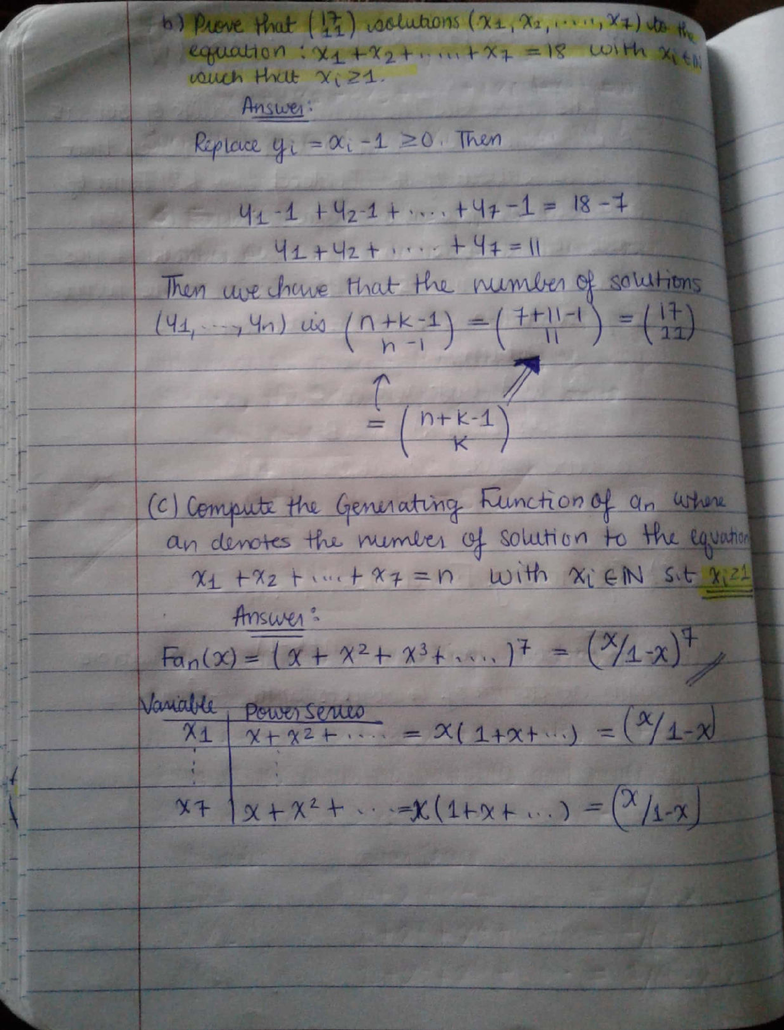 b) Prove that (17 11) solutions (x1, x2, ....., x7) to the
equation : x1 + x2 + ..... + x7 = 18 with xi ∈ N
such that xi ≥ 1.
Answer:
Replace yi = xi - 1 ≥ 0. Then
y1-1 + y2-1 + .... + y7-1 = 18-7
y1 + y2 + ..... + y7 = 11
Then we have that the number of solutions
(y1, ...., yn) is (n+k-1 n-1) = (7+11-1 11) = (17 11)
= (n+k-1 k)
(c) Compute the Generating Function of an where
an denotes the number of solution to the equation
x1 + x2 + .... + x7 = n with xi ∈ IN s.t xi≥1
Answer:
Fan(x) = (x + x² + x³ + .....)⁷ = (x/1-x)⁷
Variable Power Series
x1 x + x² + ..... = x(1+x+...) = (x/1-x)
x7 x + x² + ... = x(1+x+...) = (x/1-x)